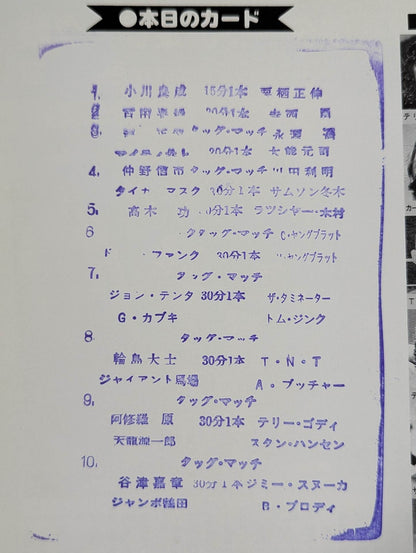 ●本日のカード
1. 小川良成 15分1本 栗栖正伸
2. 20分1本
3. タッグ・マッチ 永源
20分1本 大熊元司
4. 仲野信市 タッグ・マッチ 川田利明
タイガーマスク 30分1本 サムソン冬木
5. 高木 功 30分1本 ラッシャー・木村
6 タッグ・マッチ C・ヤングブラット
ド・ファンク 30分1本 ヤングブラット
7. タッグ・マッチ
ジョン・テンタ 30分1本 ザ・タミネーター
G・カブキ トム・ジンク
8 タッグ・マッチ
輪島大士 30分1本 T・N・T
ジャイアント馬場 A・ブッチャー
9. タッグ・マッチ
阿修羅 原 30分1本 テリー・ゴディ
天龍源一郎 スタン・ハンセン
10. タッグ・マッチ
谷津嘉章 30分1本 ジミー・スヌーカ
ジャンボ鶴田 B・ブロディ